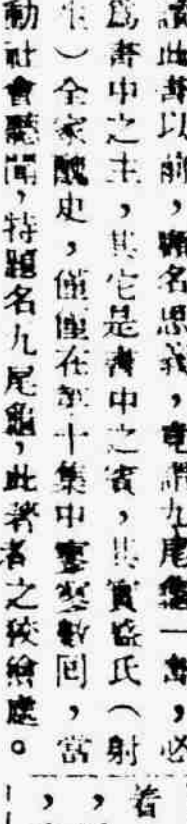 讀此書以前，顧名思義，竟謂九尾龜一書，必
爲書中之主，其它是書中之賓，其實盛氏（射
）全家醜史，僅僅在第十集中寥寥數回，當
動社會聽聞，特題名九尾龜，此著者之狡繪處。
着
，
，